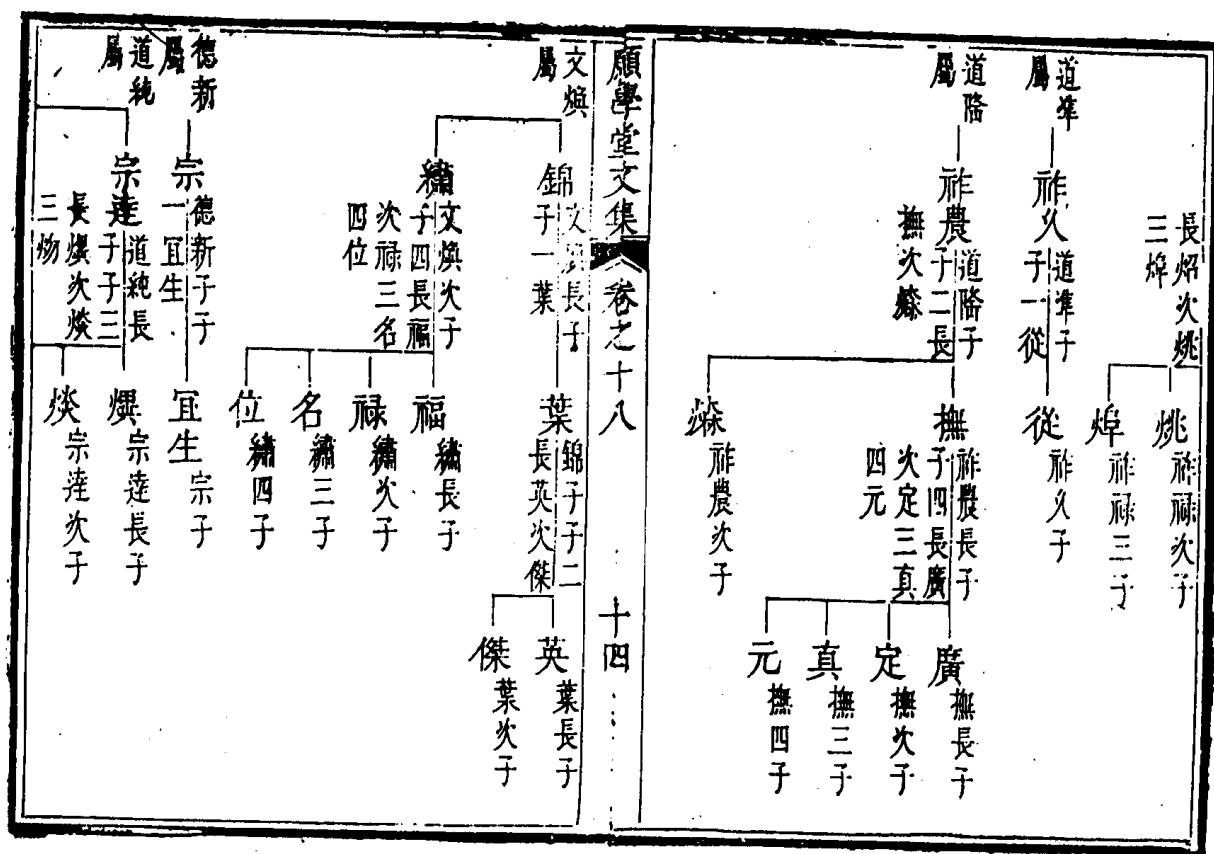 長炤次烑
三焯
烑
祚禄次子
焯
祚禄三子
道準
屬
祚久
道準子
子一從
從
祚久子
道隆
屬
祚農
道隆子
子二長
撫次㷋
撫
祚農長子
子四長廣
次定三真
四元
祚農次子
廣
撫長子
定
撫次子
真
撫三子
元
撫四子
願學堂文集
卷之十八
十四
文煥
屬
錦
文煥長子
子一葉
葉
錦子子二
長英次傑
英
葉長子
傑
葉次子
繡
文煥次子
子四長福
次禄三名
四位
福
繡長子
禄
繡次子
名
繡三子
位
繡四子
德新
屬
宗
德新子子
一宜生
宜生
宗子
道純
屬
宗達
道純長
子子三
長熼次燚
三炀
宗達長子
宗達次子